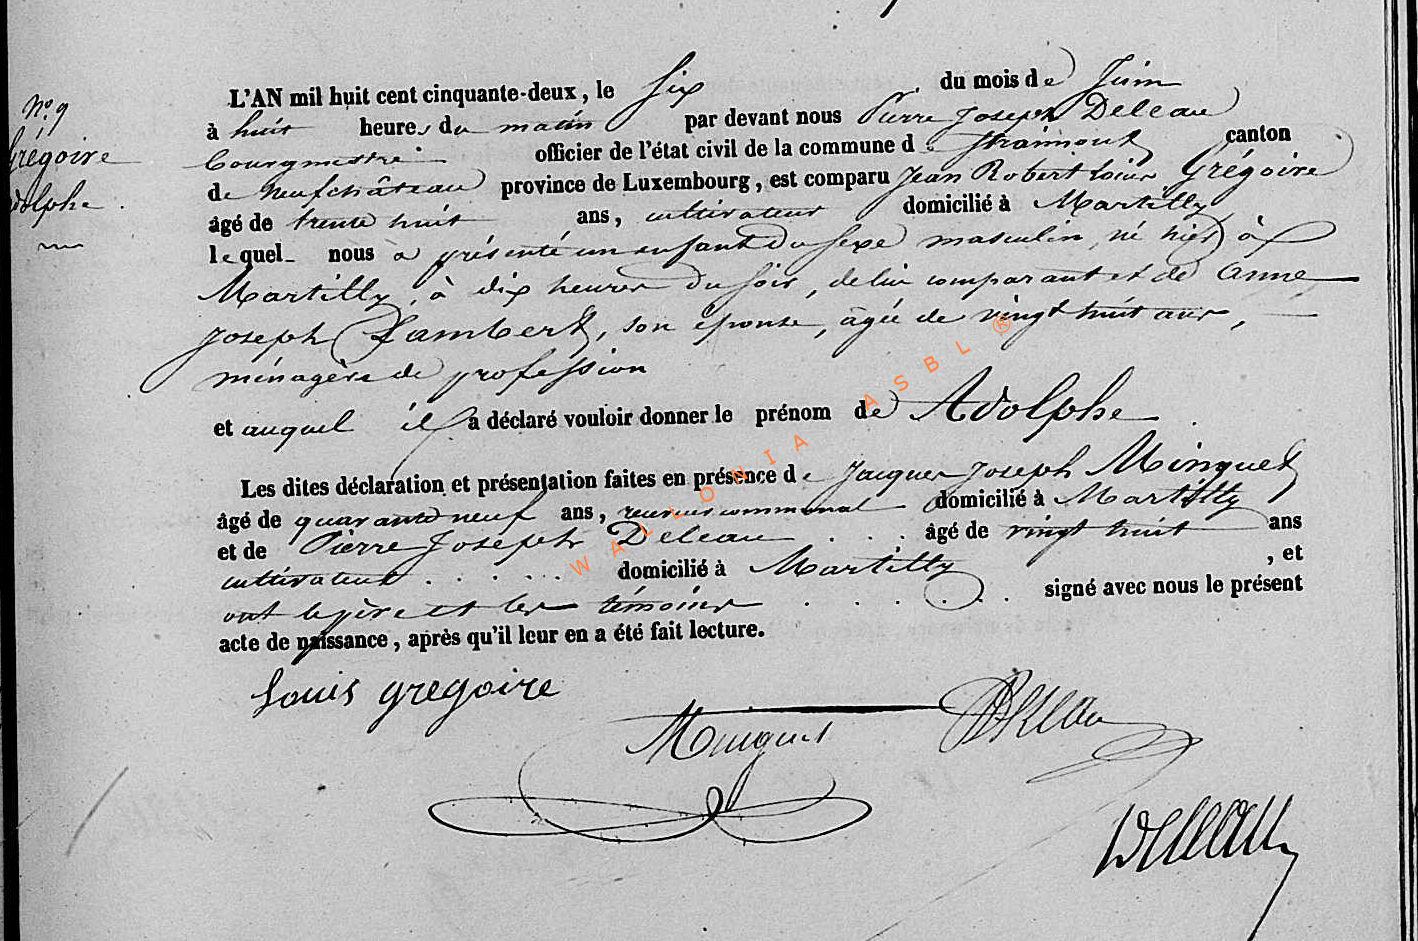 N.° 9
Grégoire
Adolphe.
L'AN mil huit cent cinquante-deux, le six du mois de Juin
à huit heures du matin par devant nous Pierre Joseph Deleau
Bourgmestre officier de l'état civil de la commune de Straimont canton
de Neufchâteau province de Luxembourg, est comparu Jean Robert Louis Grégoire
âgé de trente huit ans, cultivateur domicilié à Martilly
lequel nous a présenté un enfant du sexe masculin, né hier à
Martilly, à dix heures du soir, de lui comparant et de Anne
Joseph Lambert, son épouse, âgée de vingt huit ans,
ménagère de profession
et auquel il a déclaré vouloir donner le prénom de Adolphe
Les dites déclaration et présentation faites en présence de Jacques Joseph Minguet
âgé de quarante neuf ans, receveur communal domicilié à Martilly
et de Pierre Joseph Deleau . . . âgé de vingt huit ans
cultivateur . . . . . domicilié à Martilly , et
ont le père et les témoins . . . . . signé avec nous le présent
acte de naissance, après qu'il leur en a été fait lecture.
Louis gregoire
Minguet
Deleau
WALLONIA ASBL ®